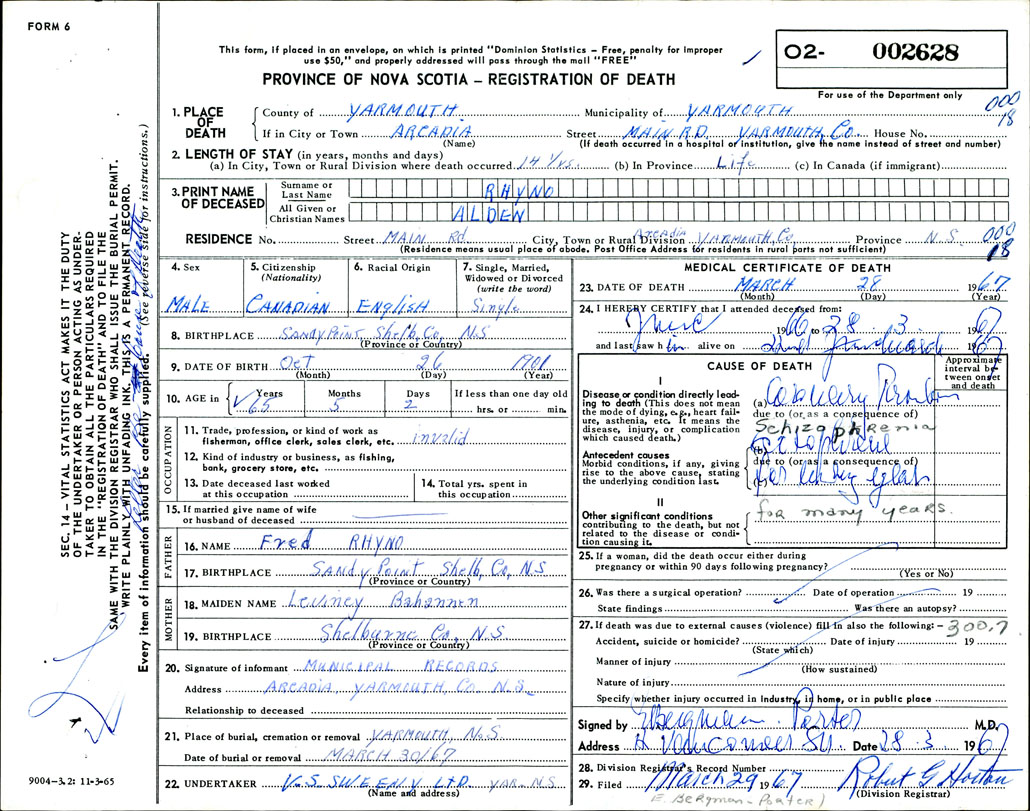 FORM 6
This form, if placed in an envelope, on which is printed "Dominion Statistics – Free, penalty for improper
use $50," and properly addressed will pass through the mail "FREE"
PROVINCE OF NOVA SCOTIA – REGISTRATION OF DEATH
02- 002628
For use of the Department only
000
18
SEC. 14 – VITAL STATISTICS ACT MAKES IT THE DUTY
OF THE UNDERTAKER OR PERSON ACTING AS UNDER-
TAKER TO OBTAIN ALL THE PARTICULARS REQUIRED
IN THE "REGISTRATION OF DEATH" AND TO FILE THE
SAME WITH THE DIVISION REGISTRAR WHO SHALL ISSUE THE BURIAL PERMIT.
WRITE PLAINLY WITH UNFADING INK. THIS IS A PERMANENT RECORD.
Every item of information should be carefully supplied. (See reverse side for instructions.)
1. PLACE OF DEATH County of YARMOUTH Municipality of YARMOUTH
If in City or Town ARCADIA Street MAIN RD. YARMOUTH, Co. House No.
(Name) (If death occurred in a hospital or institution, give the name instead of street and number)
2. LENGTH OF STAY (in years, months and days)
(a) In City, Town or Rural Division where death occurred 14 Yrs. (b) In Province Life (c) In Canada (if immigrant)
3. PRINT NAME OF DECEASED Surname or Last Name RHYNO
All Given or Christian Names ALDEN
RESIDENCE No. Street MAIN Rd City, Town or Rural Division Arcadia YARMOUTH, Co Province N.S. 000
18
(Residence means usual place of abode. Post Office Address for residents in rural parts not sufficient)
4. Sex 5. Citizenship (Nationality) 6. Racial Origin 7. Single, Married, Widowed or Divorced (write the word)
MALE CANADIAN English Single
8. BIRTHPLACE SANDY Point, Shelb, Co, N.S
(Province or Country)
9. DATE OF BIRTH Oct 26 1901
(Month) (Day) (Year)
10. AGE in Years Months Days If less than one day old
65 5 2 hrs. or min.
OCCUPATION
11. Trade, profession, or kind of work as
fisherman, office clerk, sales clerk, etc. invalid
12. Kind of industry or business, as fishing,
bank, grocery store, etc.
13. Date deceased last worked at this occupation
14. Total yrs. spent in this occupation
15. If married give name of wife
or husband of deceased
FATHER
16. NAME Fred RHYNO
17. BIRTHPLACE SANdy Point Shelb, Co, N.S
(Province or Country)
MOTHER
18. MAIDEN NAME
19. BIRTHPLACE Shelburne Co, N.S.
(Province or Country)
20. Signature of informant MUNICIPAL RECORDS
Address ARCADIA, YARMOUTH, Co. N.S.
Relationship to deceased
21. Place of burial, cremation or removal YARMOUTH, N.S
Date of burial or removal MARCH 30/67
22. UNDERTAKER V.S. SWEENY LTD. YAR. N.S.
(Name and address)
9004-3.2: 11-3-65
MEDICAL CERTIFICATE OF DEATH
23. DATE OF DEATH MARCH 28 1967
(Month) (Day) (Year)
24. I HEREBY CERTIFY that I attended deceased from:
June 1966 to 28 . 3 . 1967
and last saw him alive on 1967
CAUSE OF DEATH
Approximate interval between onset and death
I
Disease or condition directly leading to death (This does not mean the mode of dying, e.g., heart failure, asthenia, etc. It means the disease, injury, or complication which caused death.)
(a) Coronary
due to (or as a consequence of)
Schizophrenia
Antecedent causes
Morbid conditions, if any, giving rise to the above cause, stating the underlying condition last.
(b)
due to (or as a consequence of)
II
for many years.
Other significant conditions
contributing to the death, but not related to the disease or condition causing it.
25. If a woman, did the death occur either during
pregnancy or within 90 days following pregnancy?
(Yes or No)
26. Was there a surgical operation? Date of operation 19
State findings Was there an autopsy?
27. If death was due to external causes (violence) fill in also the following: – 300.7
Accident, suicide or homicide? Date of injury 19
(State which)
Manner of injury
(How sustained)
Nature of injury
Specify whether injury occurred in Industry, in home, or in public place
Signed by EBergman-Porter M.D.
Address Date 28 . 3 1967
28. Division Registrar's Record Number
29. Filed March 29 1967 Robert G Horton
(Division Registrar)
E. Bergman-Porter)